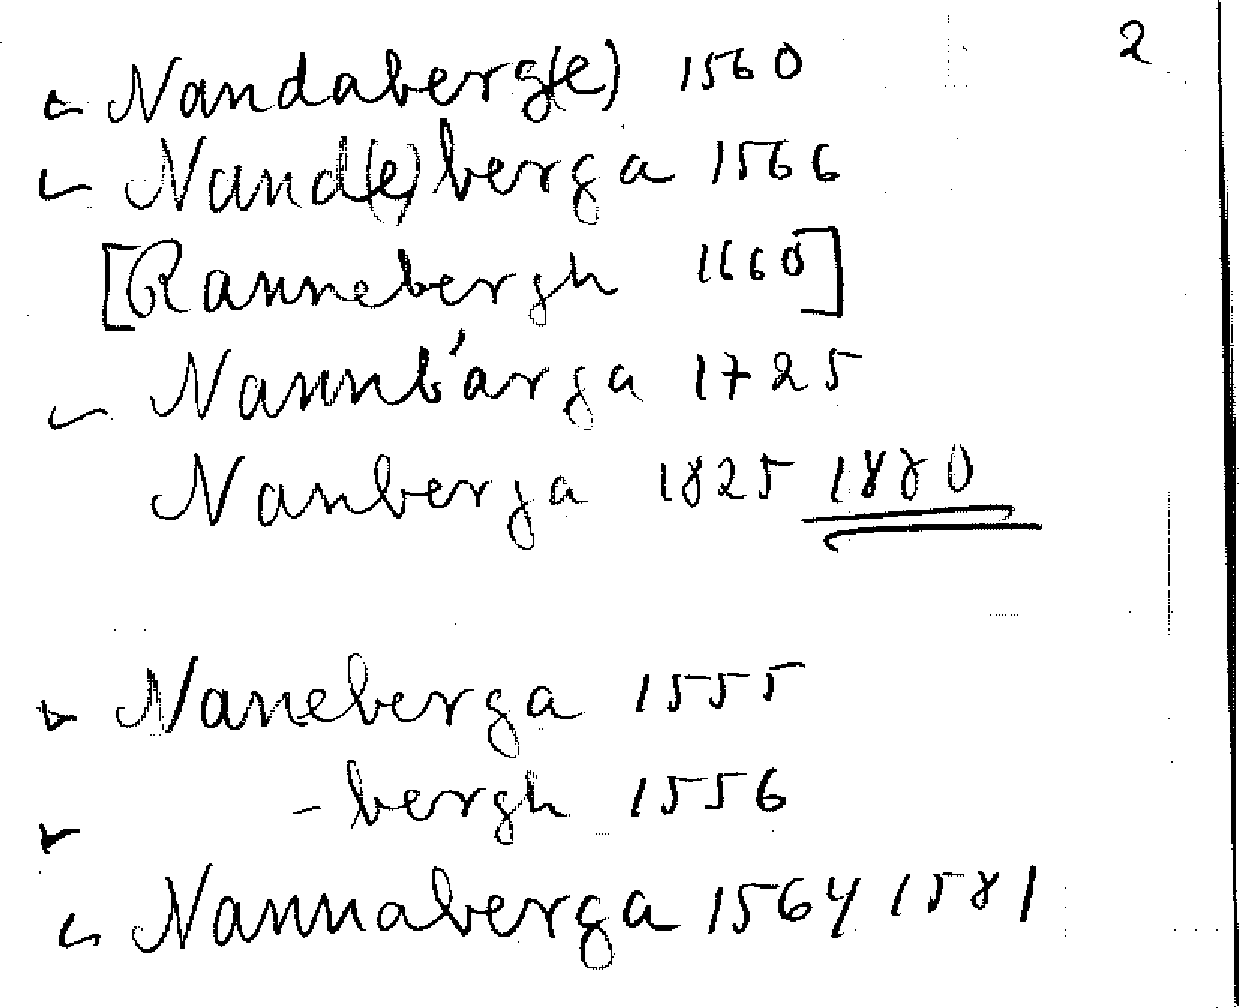 2
Nandaberg(e) 1560
Nand(e)berga 1566
[Rannebergh 1660]
Nannbärga 1725
Nanberga 1825 1880
Naneberga 1555
-bergh 1556
Nannaberga 1564 1581